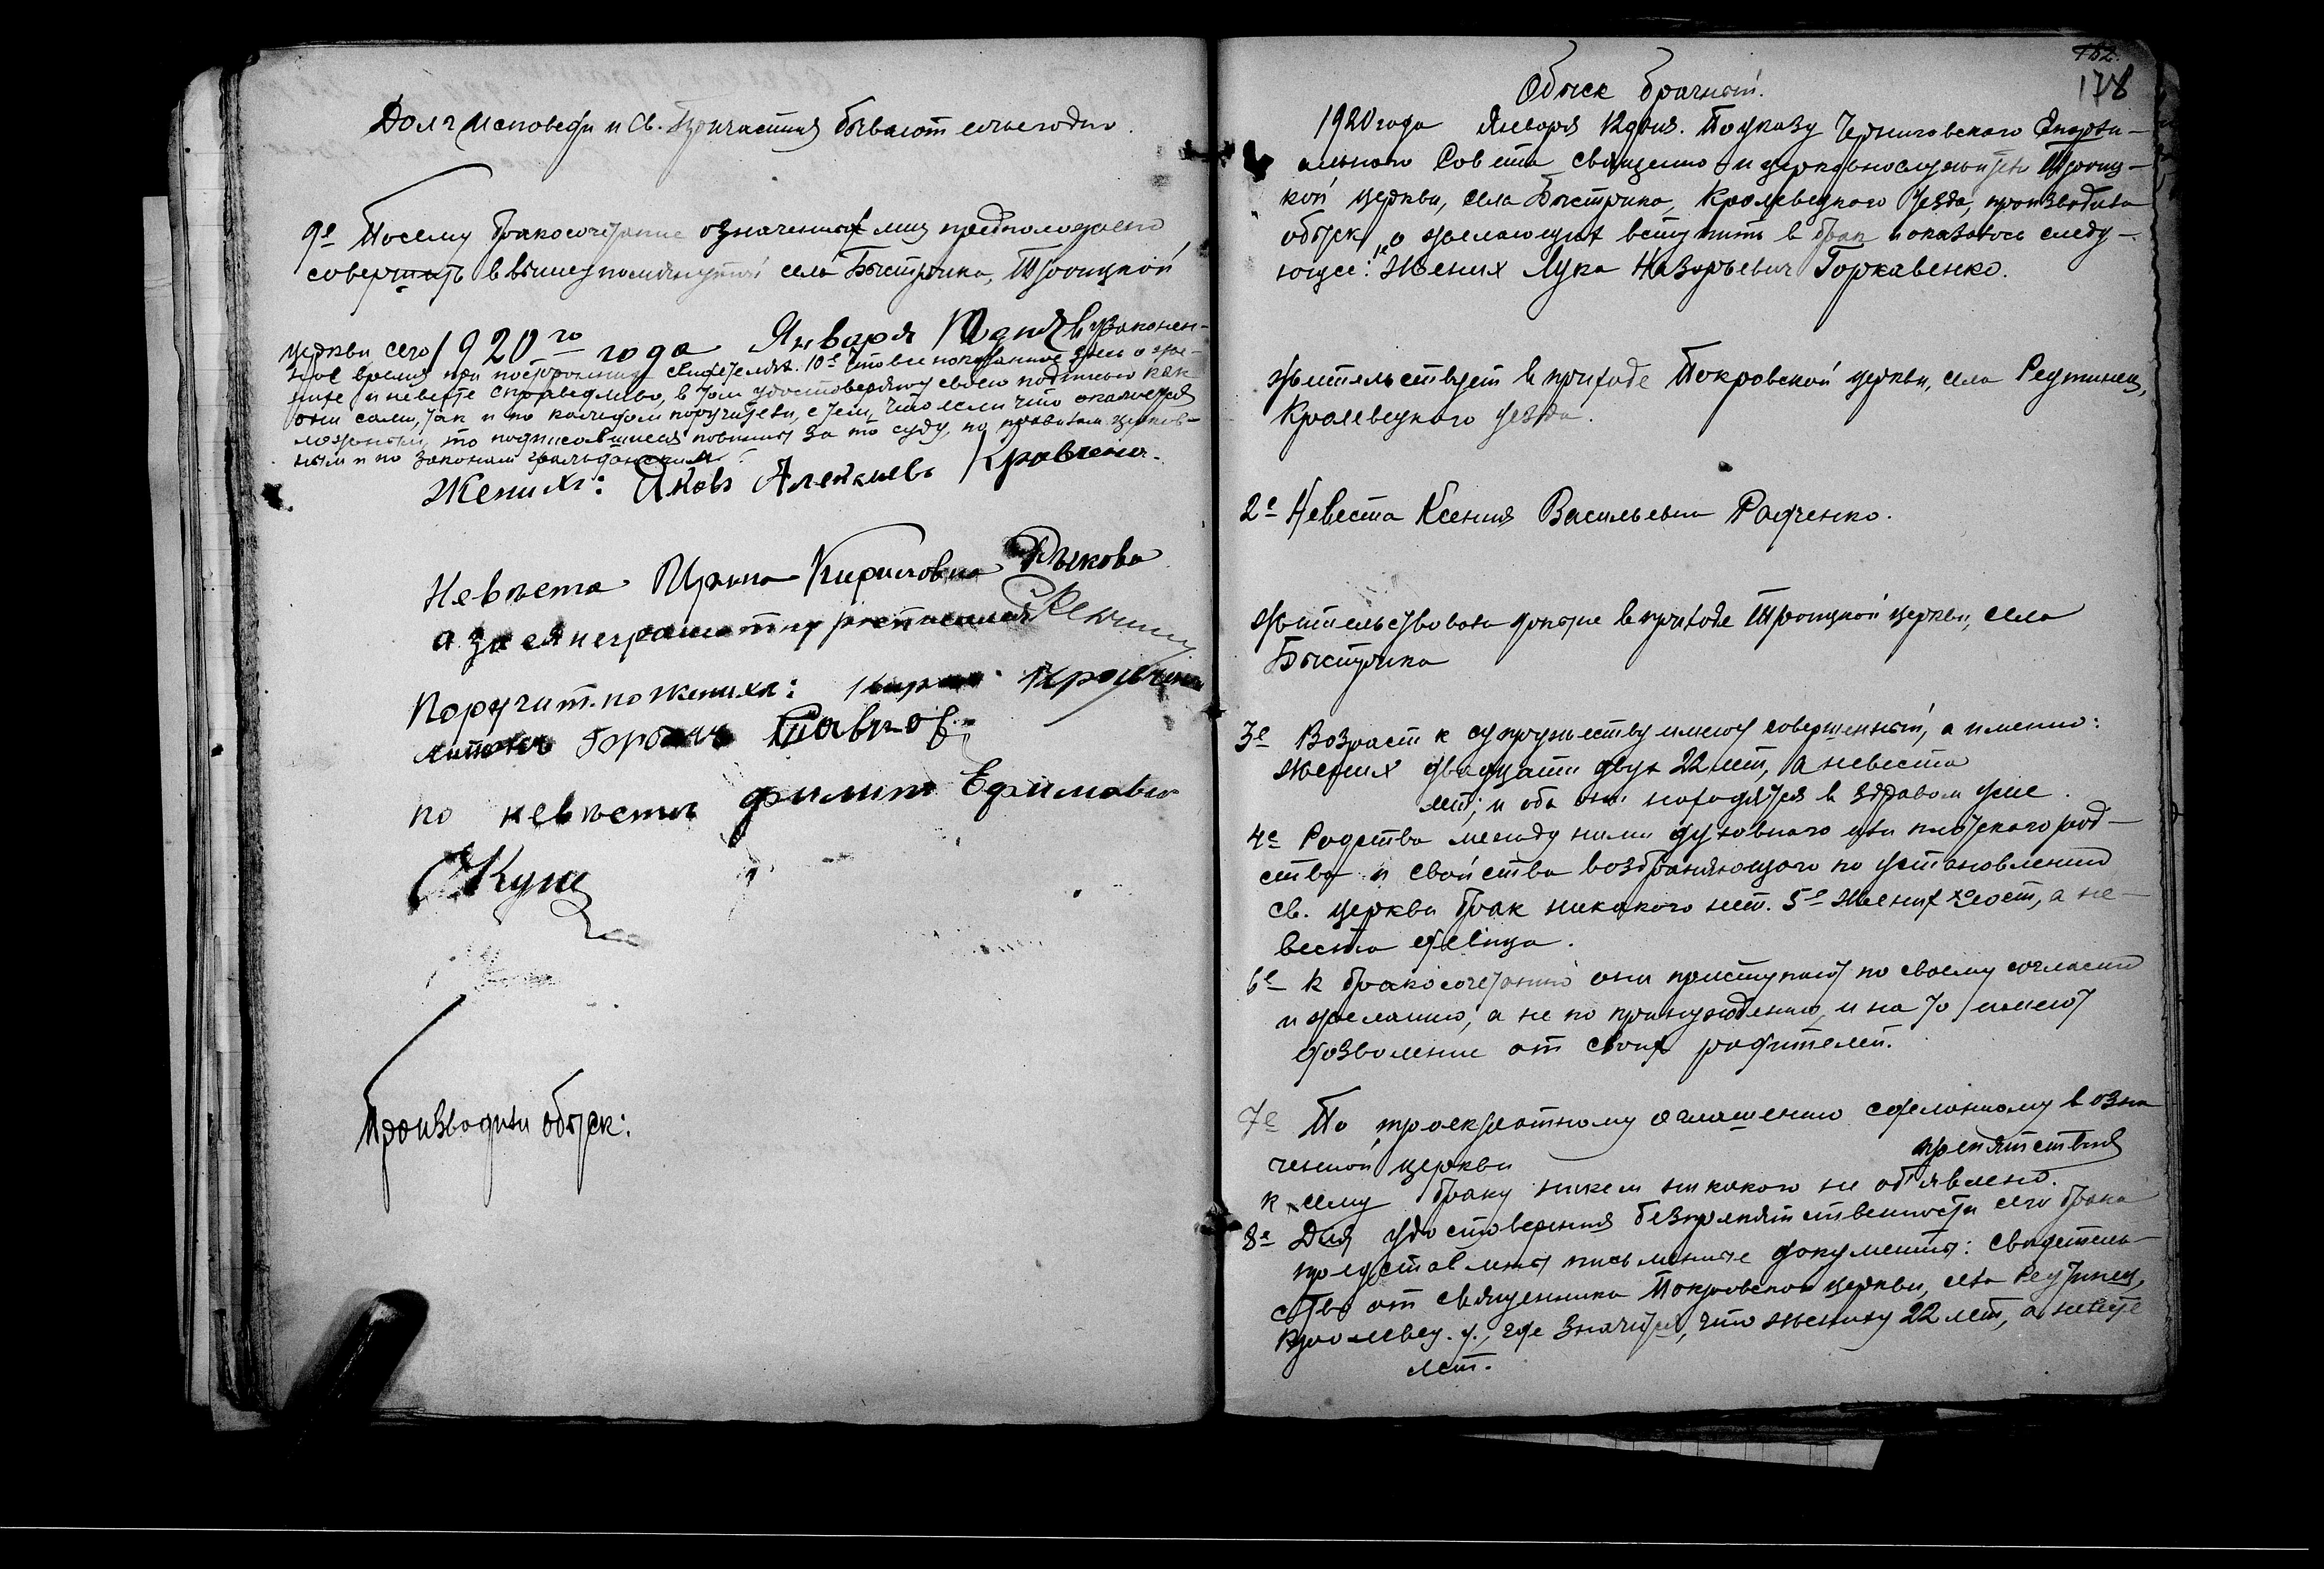 Долг исповеди и Св. Причастия бывают ежегодно.
9е Посему бракосочетание означенных лиц предположено
совершить в вышепомянутой села Быстрика, Троицкой
церкви сего 1920го года Января дня в узаконен-
ное время при посторонних свидетелях. 10е Что все показанное здесь о же-
нихе и невесте справедливо, в том удостоверяют своею подписью как
они сами, так и по каждом поручители, с тем, что если что окажется
ложным, то подписавшиеся повинны за то суду, по правилам церков-
ным и по законам гражданским.
Жених: Яков Алексиевъ Кравченко.
Невѣста Ирина Кириловна
а за ея неграмотну росписался
Поручит. по жениха:
по невѣсты филип Ефимович
Производили обыск:
152.
178
Обыск брачный.
1920 года Января 12 дня. По указу Черниговского Епархи-
ального Совета священно и церковнослужители Троиц-
кой церкви, села Быстрика, Кролевецкого уезда, производили
обыск, о желающих вступить в брак и оказалось следу-
ющее: Жених Лука Назарьевич Горкавенко.
жительствует в приходе Покровской церкви, села Реутинец,
Кролевецкого уезда.
2е Невеста Ксения Васильевна Радченко.
жительствовала доныне в приходе Троицкой церкви, села
Быстрика
3е Возраст к супружеству имеют совершенный, а именно:
жених двадцати двух 22 лет, а невеста
лет; и оба они находятся в здравом уме.
4е Родства между ними духовного или плотского род-
ства и свойства возбраняющого по установлению
св. церкви брак никакого нет. 5е Жених холост, а не-
веста девица.
6е К бракосочетанию они приступают по своему согласию
и желанию, а не по принуждению, и на то имеют
дозволение от своих родителей.
7е По троекратному оглашению сделанному в озна
ченной церкви препятствия
к сему браку никем никакого не об'явлено.
8е Для удостоверения безпрепятственности сего брака
представлены письменные документы: свидетель-
ство от священника Покровской церкви, села Реутинец,
Кролевец. у., где значится, что жениху 22 лет, а невесте
лет.